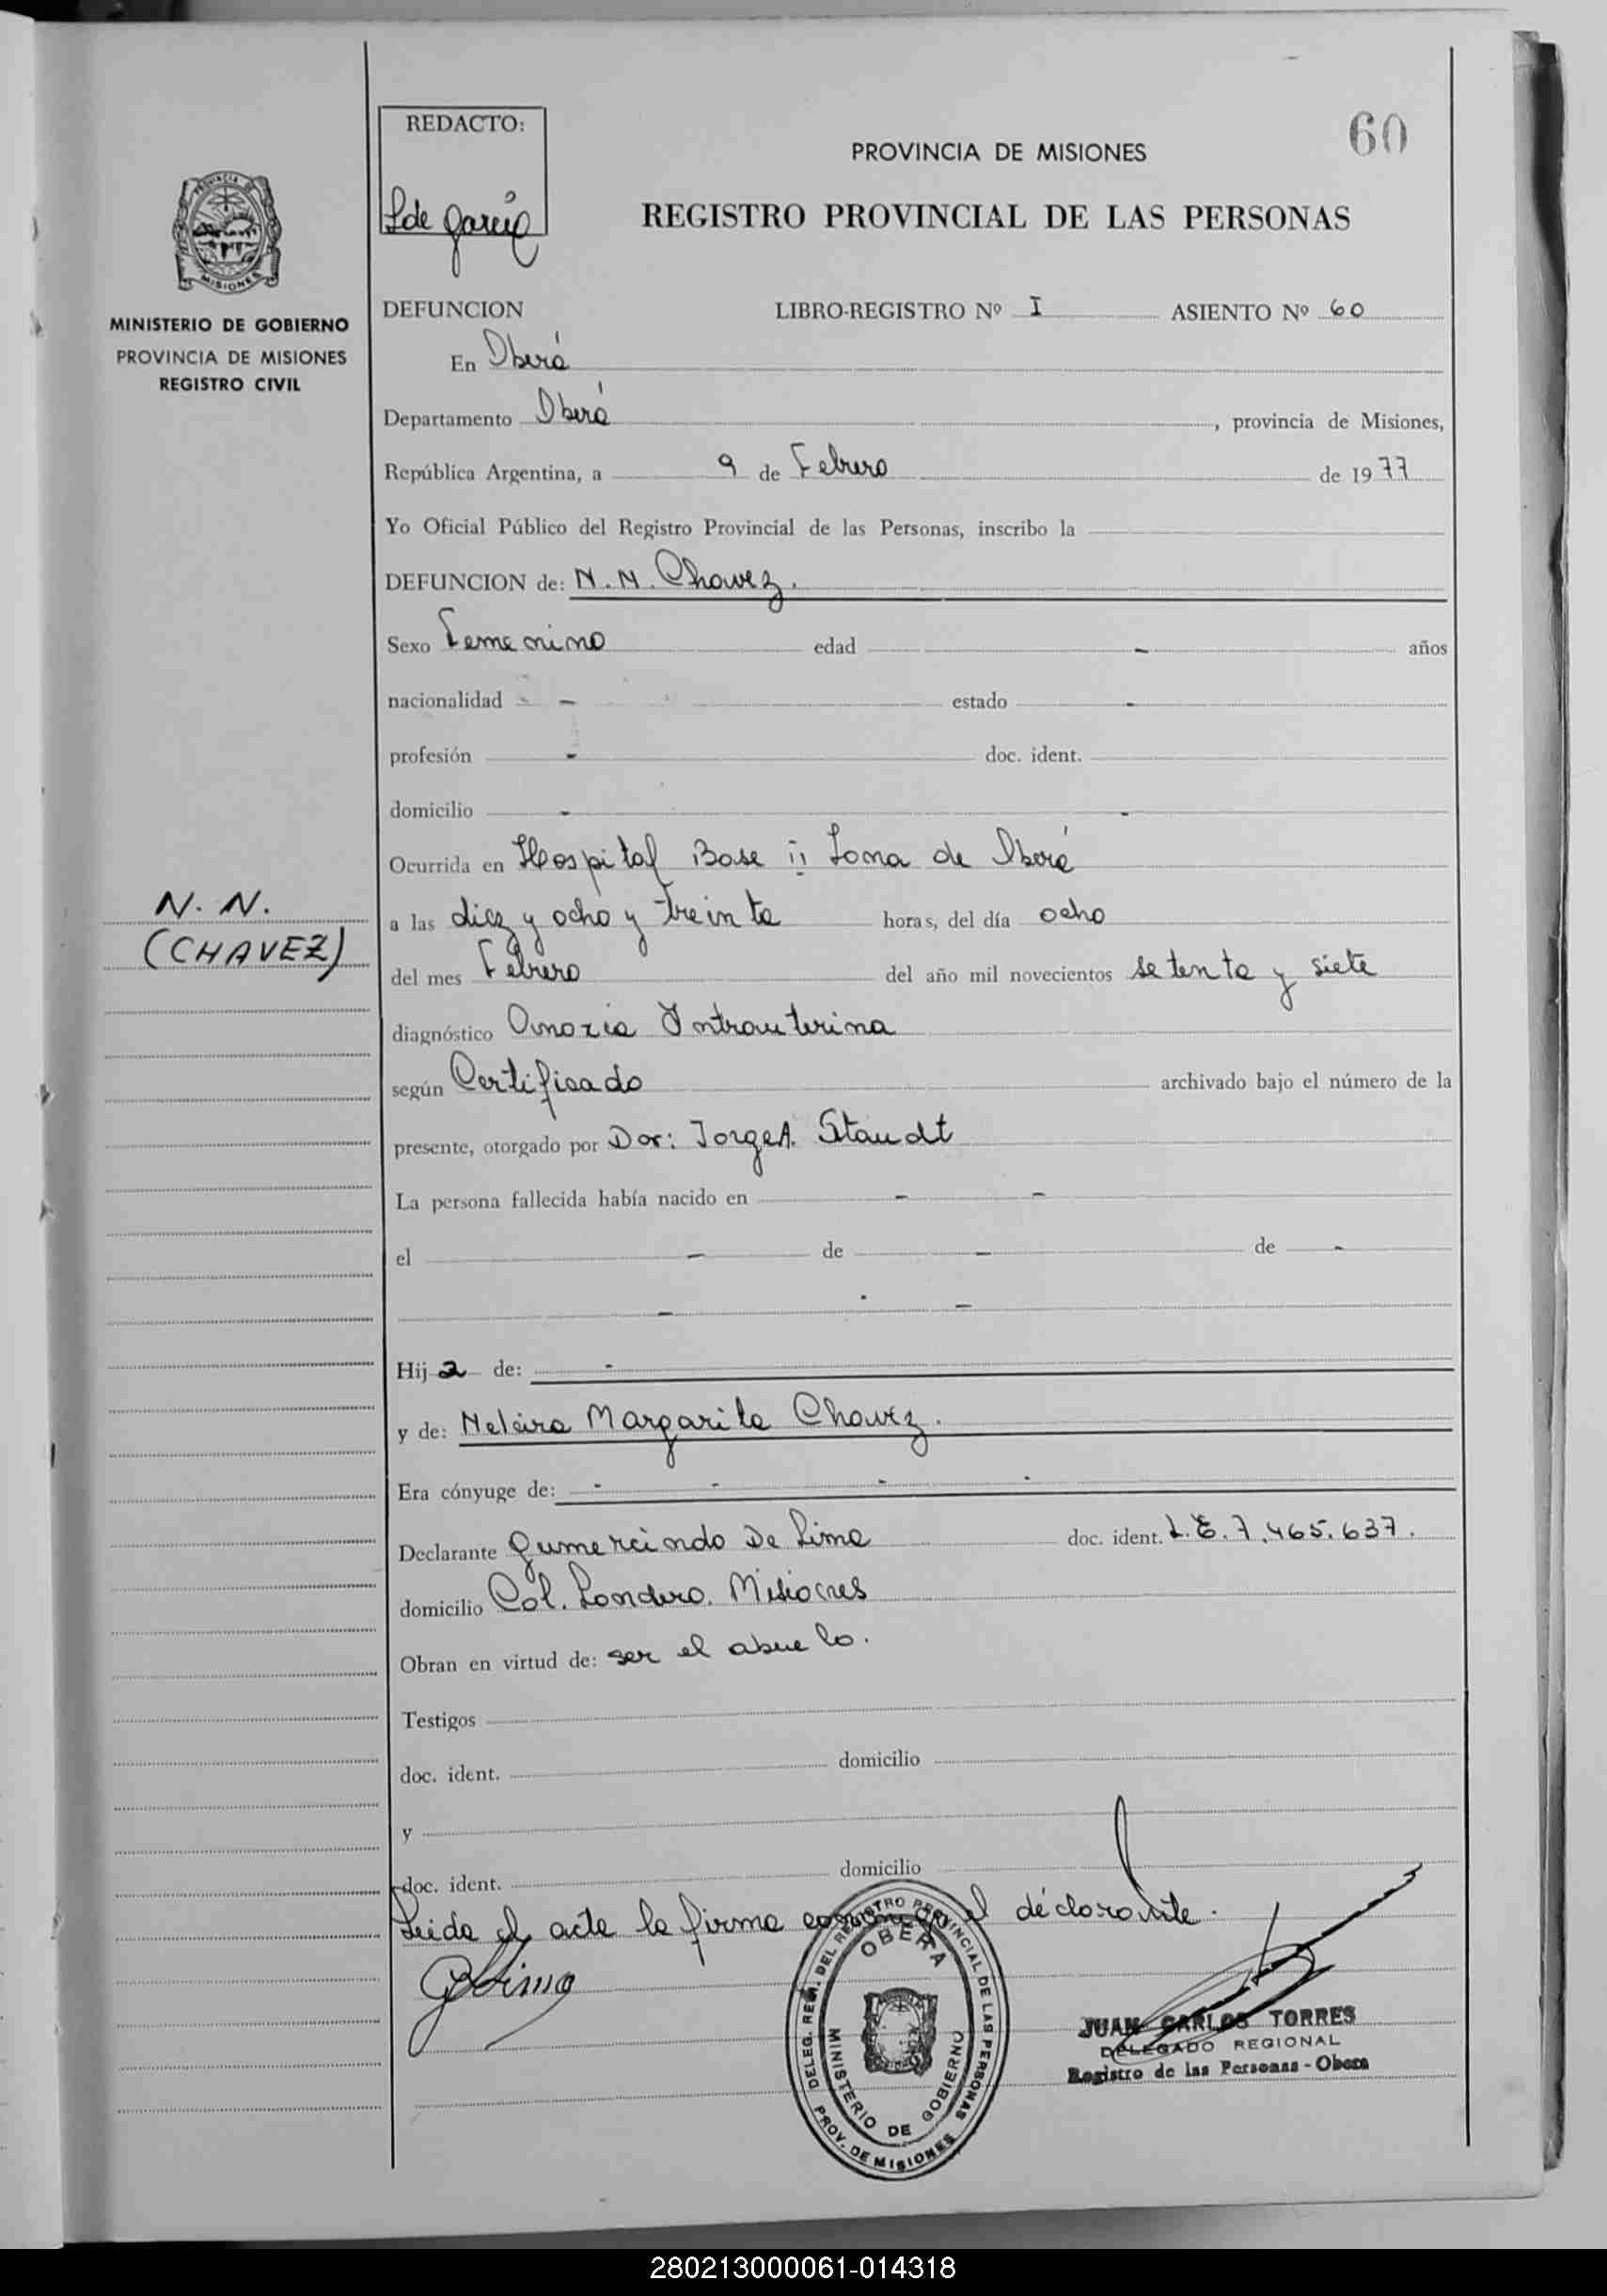 60
REDACTO:
PROVINCIA DE MISIONES
L de García
REGISTRO PROVINCIAL DE LAS PERSONAS
MINISTERIO DE GOBIERNO
PROVINCIA DE MISIONES
REGISTRO CIVIL
DEFUNCION LIBRO-REGISTRO Nº I ASIENTO Nº 60
En Oberá
Departamento Oberá, provincia de Misiones,
República Argentina, a 9 de Febrero de 1977
Yo Oficial Público del Registro Provincial de las Personas, inscribo la
DEFUNCION de: N. N. Chavez.
Sexo Femenino edad - años
nacionalidad - estado -
profesión - doc. ident.
domicilio - -
Ocurrida en Hospital Base II Loma de Oberá
N. N.
(CHAVEZ)
a las diez y ocho y treinta horas, del día ocho
del mes Febrero del año mil novecientos setenta y siete
diagnóstico Anoxia Intrauterina
según Certificado archivado bajo el número de la
presente, otorgado por Dor: Jorge A. Staudt
La persona fallecida había nacido en - -
el - de - de -
- -
Hija de: -
y de: Neleira Margarita Chavez.
Era cónyuge de: - - - -
Declarante Gumercindo De Lima doc. ident. L.E. 7.465.637.
domicilio Col. Londero. Misiones
Obran en virtud de: ser el abuelo.
Testigos
doc. ident. domicilio
y
doc. ident. domicilio
Leida el acta la firma conmigo el déclarante.
GDLima
DELEG. REGI. DEL REGISTRO PROVINCIAL DE LAS PERSONAS
OBERA
MINISTERIO DE GOBIERNO
PROV. DE MISIONES
JUAN CARLOS TORRES
DELEGADO REGIONAL
Registro de las Personas - Obera
280213000061-014318